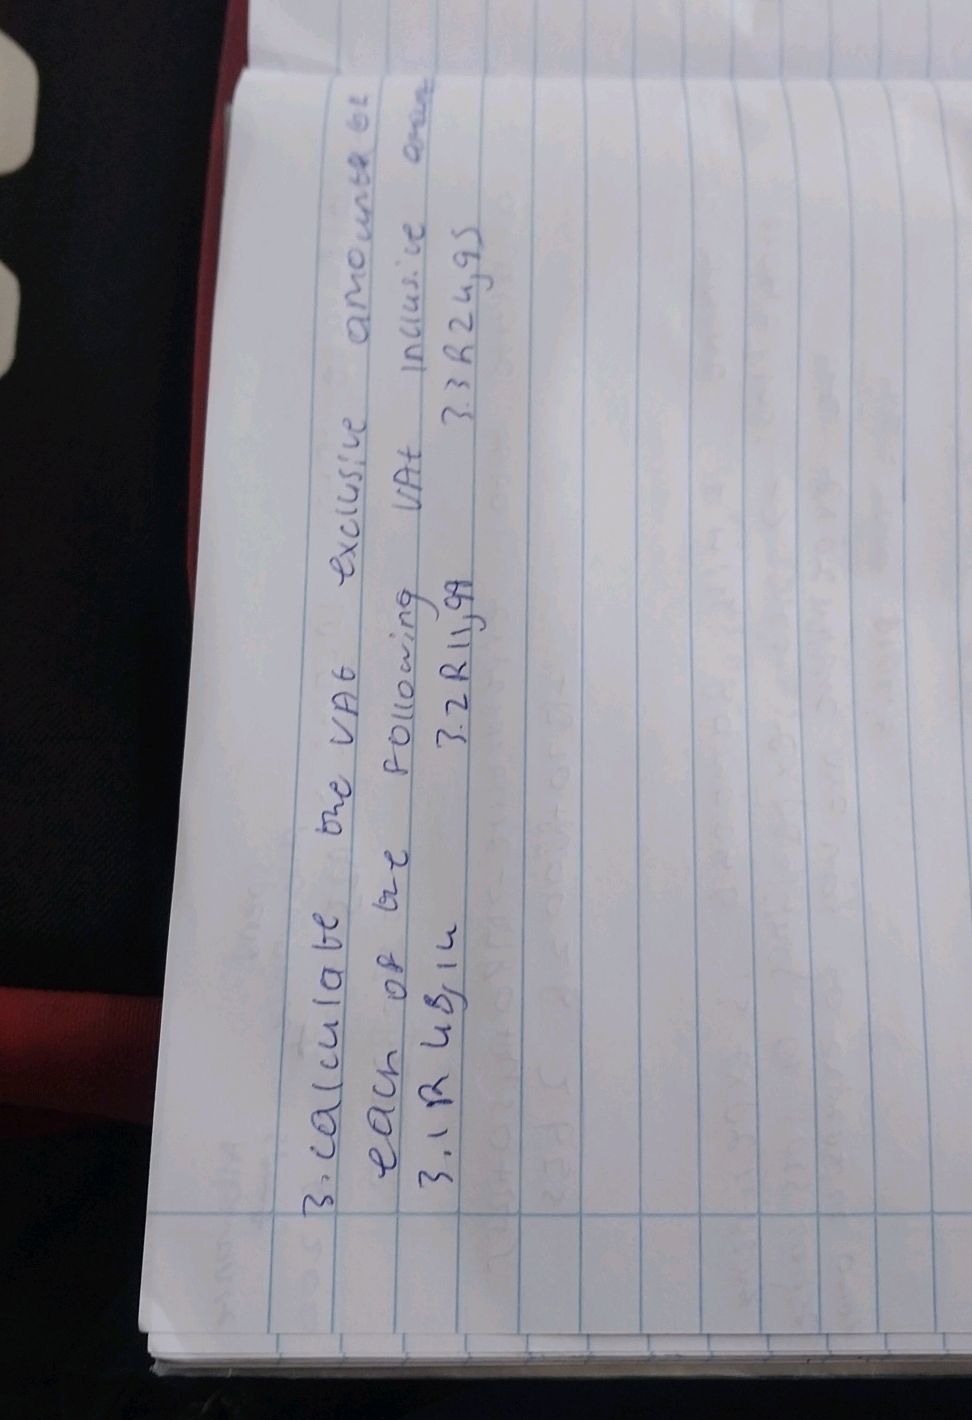 3. calculate the VAt exclusive amounts
each of the following VAt inclusive
3.1 R 48,14 3.2 R 11,99 3.3 R 24,95